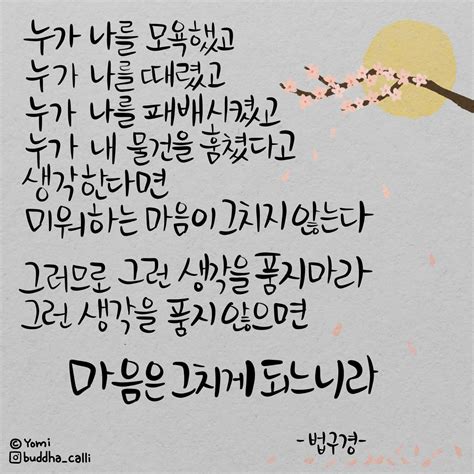 누가 나를 모욕했고
누가 나를 때렸고
누가 나를 패배시켰고
누가 내 물건을 훔쳤다고
생각한다면
미워하는 마음이 그치지 않는다
그러므로 그런 생각을 품지마라
그런 생각을 품지 않으면
마음은 그치게 되느니라
-법구경-
©Yomi
buddha_calli